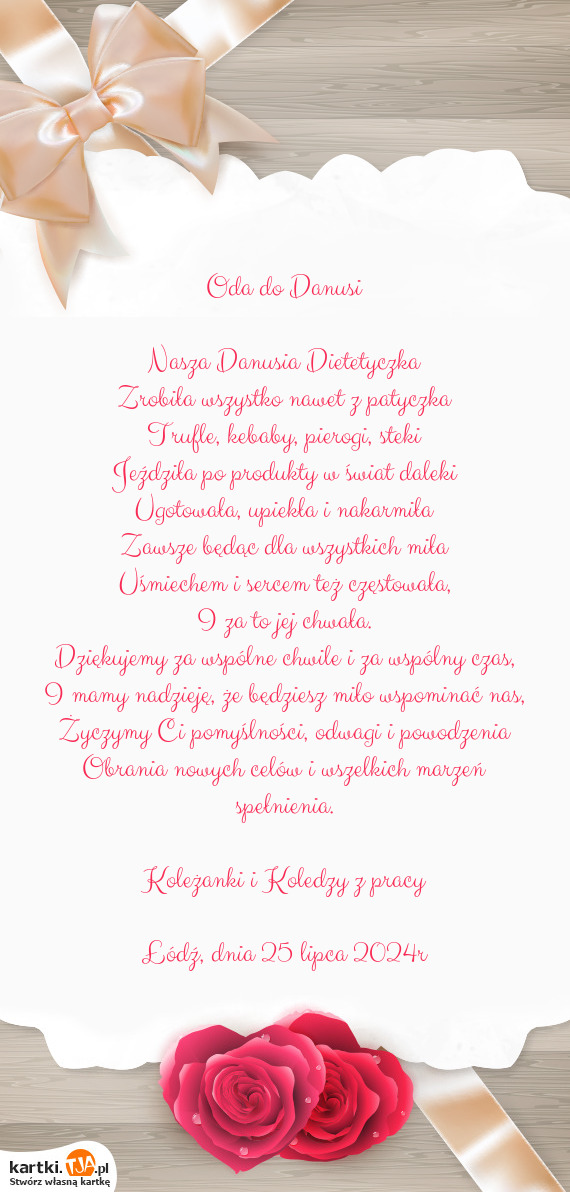 Oda do Danusi
Nasza Danusia Dietetyczka
Zrobiła wszystko nawet z patyczka
Trufle, kebaby, pierogi, steki
Jeździła po produkty w świat daleki
Ugotowała, upiekła i nakarmiła
Zawsze będąc dla wszystkich miła
Uśmiechem i sercem też częstowała,
I za to jej chwała.
Dziękujemy za wspólne chwile i za wspólny czas,
I mamy nadzieję, że będziesz miło wspominać nas,
Życzymy Ci pomyślności, odwagi i powodzenia
Obrania nowych celów i wszelkich marzeń
spełnienia.
Koleżanki i Koledzy z pracy
Łódź, dnia 25 lipca 2024r
kartki.TJA.pl
Stwórz własną kartkę